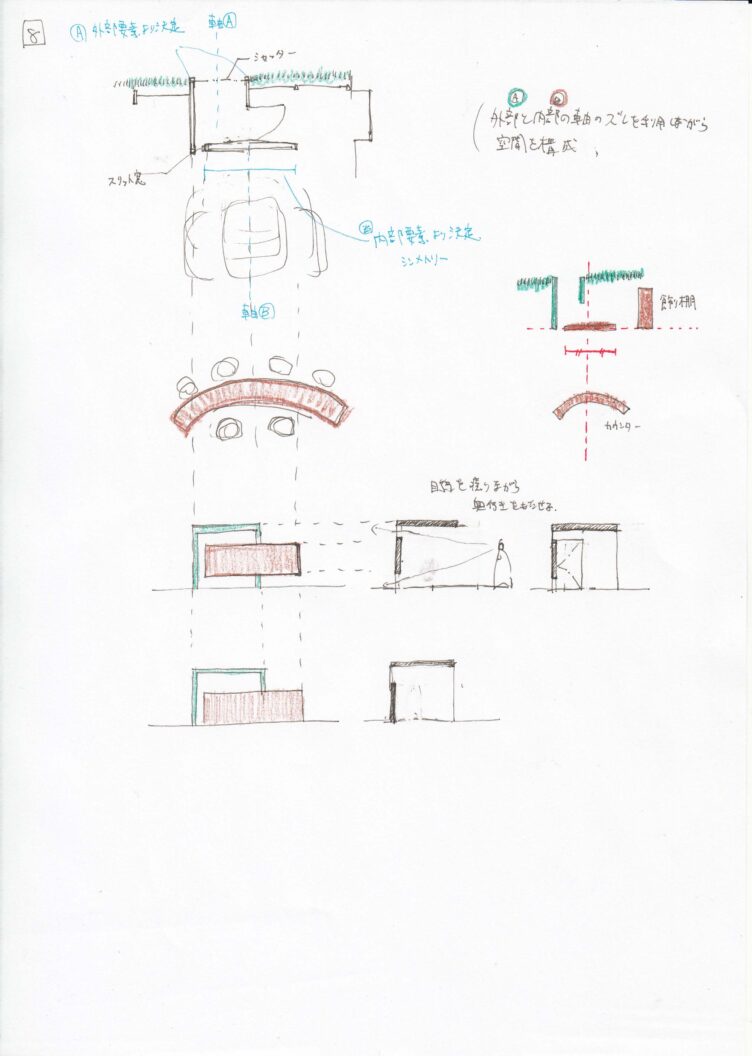 8
Ⓐ 外部要素より決定
軸Ⓐ
シャッター
Ⓐ Ⓑ
外部と内部の軸のズレを利用しながら
空間を構成
スリット窓
Ⓑ 内部要素より決定
シンメトリー
軸Ⓑ
飾り棚
カウンター
目線を遮りながら
奥行きをもたせる.